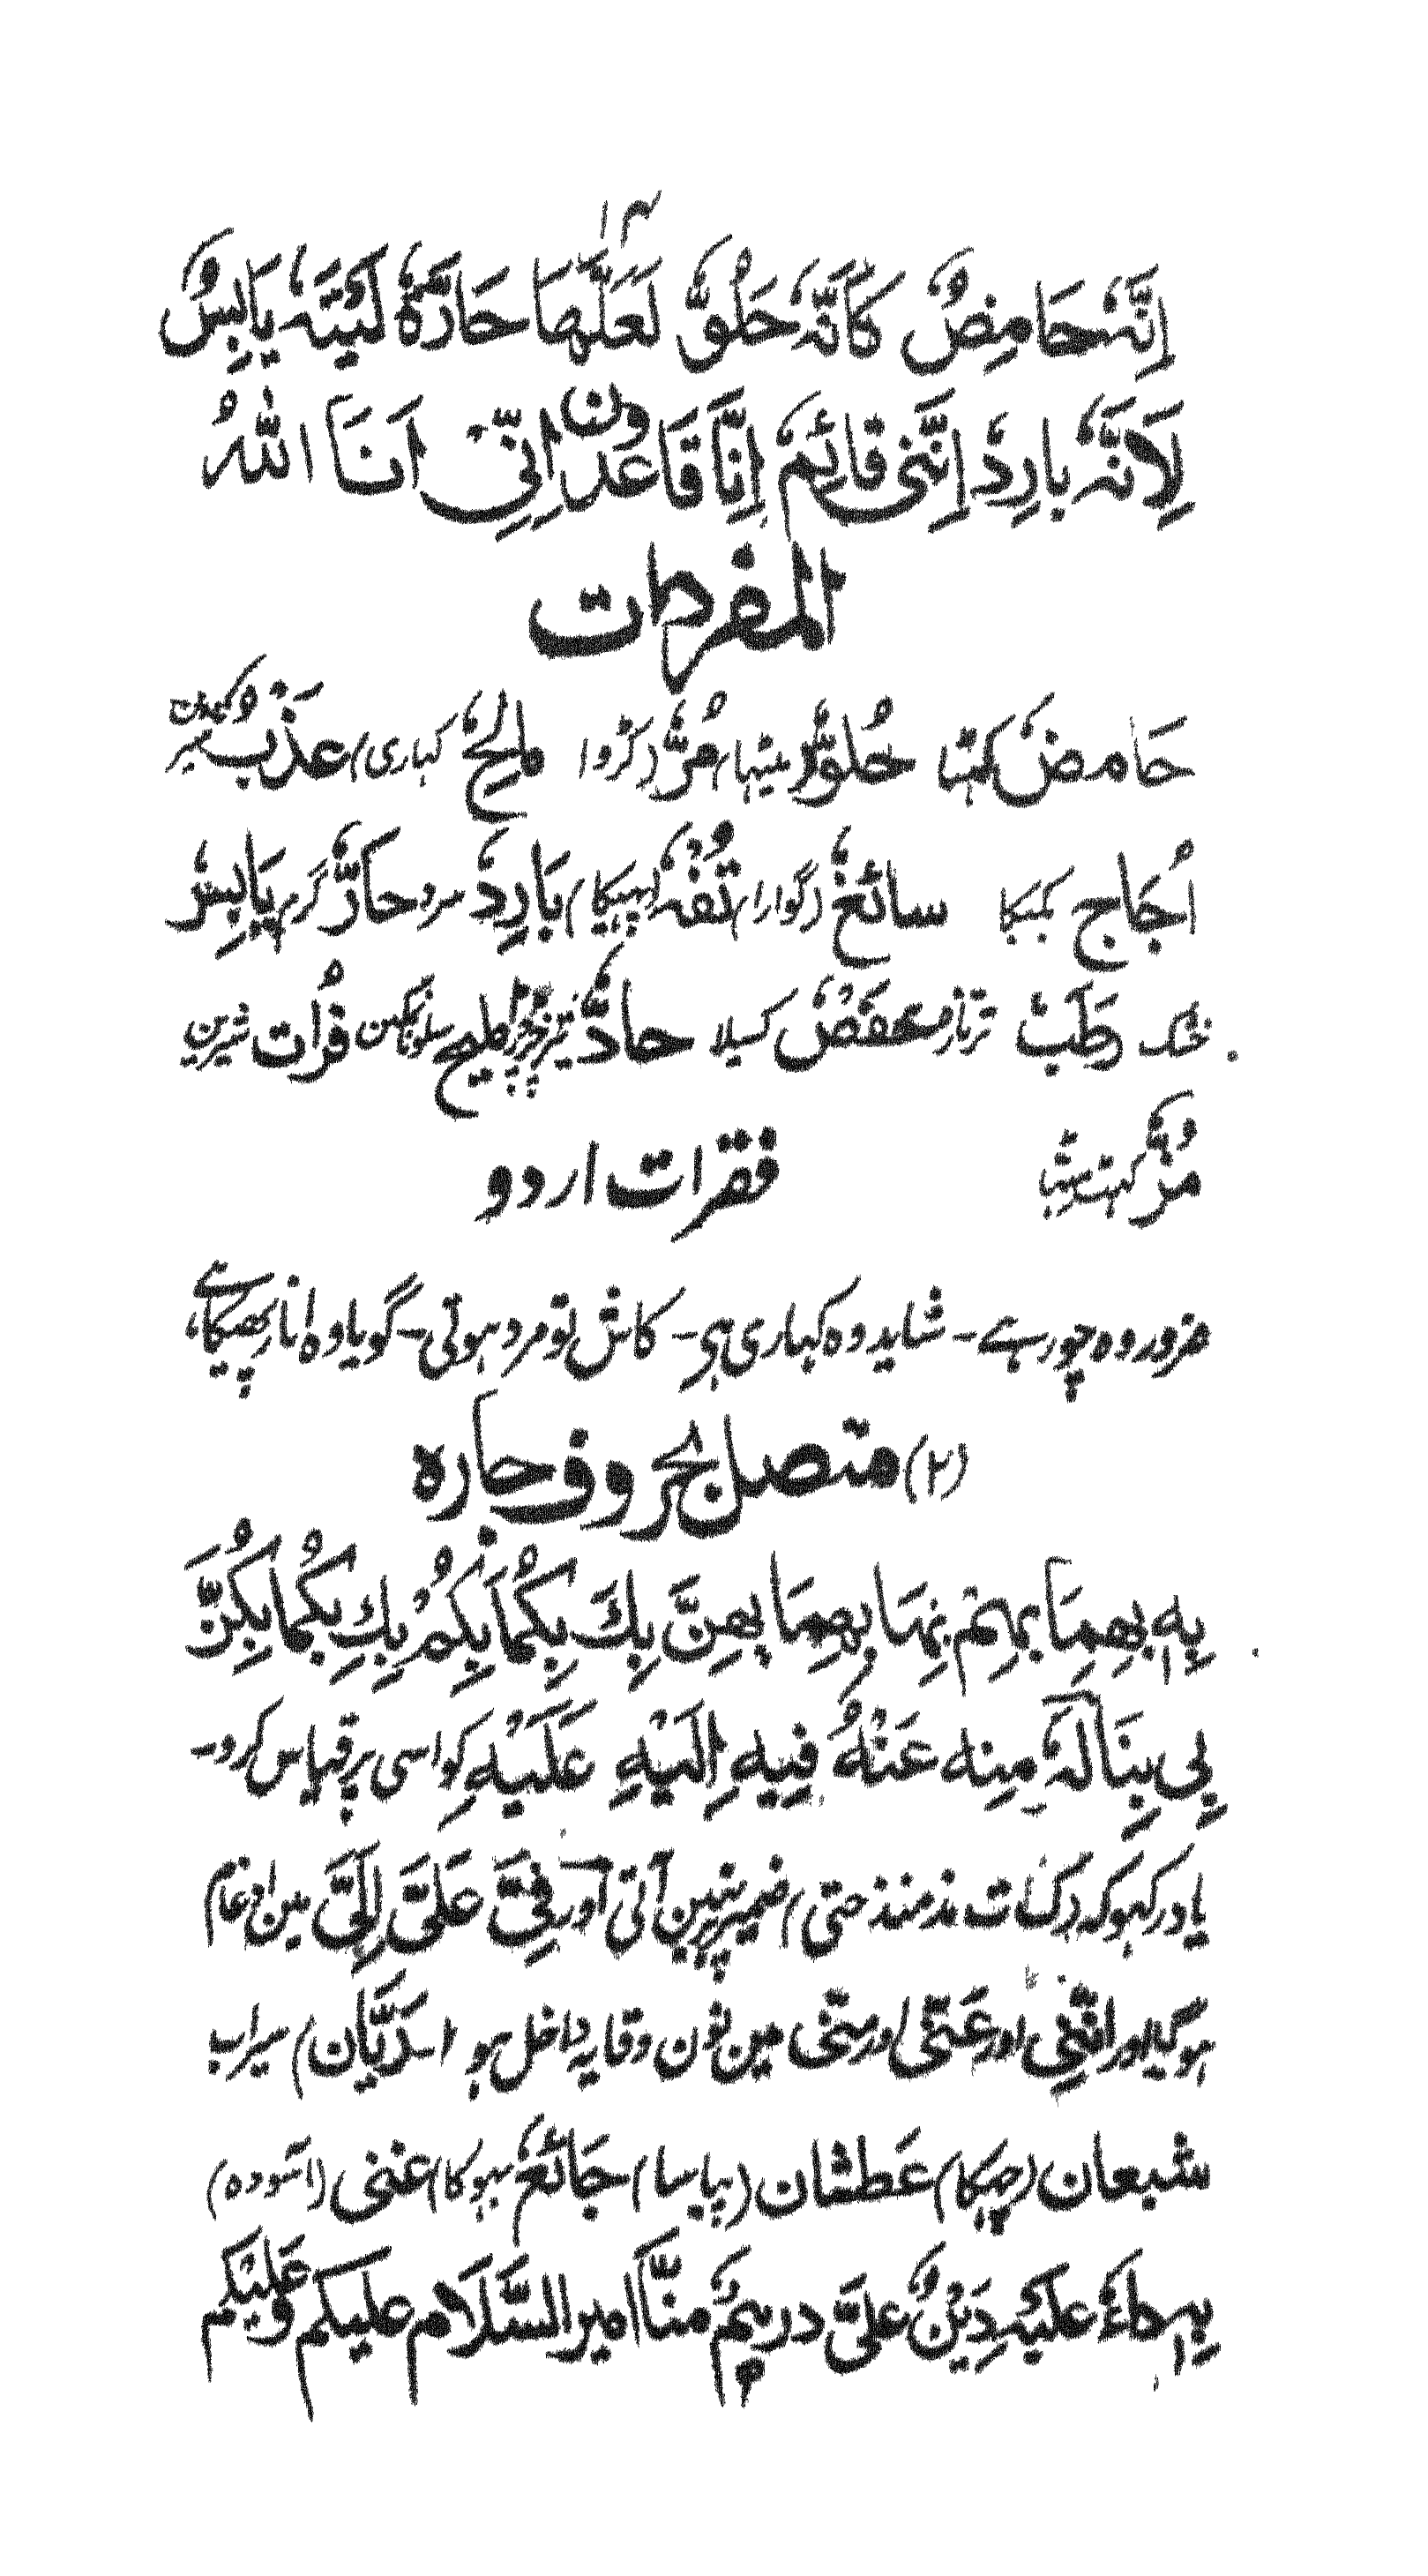 ۱۴
اِنَّہٗ حَامِضٌ کَاَنَّہٗ حَلُوٌّ لَعَلَّهَا حَارَّةٌ لَيْتَہٗ يَابِسٌ
لِاَنَّہٗ بارِدٌ اِنَّنِی قائِمٌ اِنَّا قَاعدون اِنِّیْ اَنَا اللّٰهُ
المفردات
حَامضٌ کھٹا حُلوٌّ (میٹھا) مُرٌّ (کڑوا مالحٌ کہاری) عَذْبٌ
اُجَاج سائغٌ (گوارا) تُفُہٌ (پھیکا) بَارِدٌ سرد حَارٌّ گرم یَابِسٌ
خشک رَطَبٌ ترتازہ عَفَصٌ کسیلا حادٌّ ملیح سلونا نمکین فُرات شیرین
مُزٌّ کہٹ مٹہا
فقرات اردو
ضرور وہ چور ہے - شاید وہ کہاری ہی - کاش تو مرد ہوتی - گویا وہ انار پھیکا ہے
(۲) متصل بحروف جارہ
بِهٖ بِهِمَا بِهِمْ بِهَا بِهِمَا بِهِنَّ بِكَ بِكُمَا بِكُمْ بِكِ بِكُمَا بِكُنَّ
بِی بِنَا لَہٗ مِنه عَنْهُ فِيهِ اِلَيْهِ عَلَيْهِ کو اسی پر قیاس کرو -
یاد رکہو کہ (ک ت مذ منذ حتی) ضمیر پر نہین آتی اور فِیَّ عَلَیَّ اِلَیَّ مین ادغام
ہوگیا اور اور عَنِّی اور مِنِّی مین نون وقایہ داخل ہو اسد رَیَّان) سیراب
شبعان (چھکا) عَطشان (پیاسا) جَائعٌ بہوکا) غنی (آسودہ)
بِهٖ داءٌ عَلَيْہِ دَيْنٌ عَلَیَّ درہمٌ مِنَّا امیر السَّلَام علیکم وعَلَیْکُم